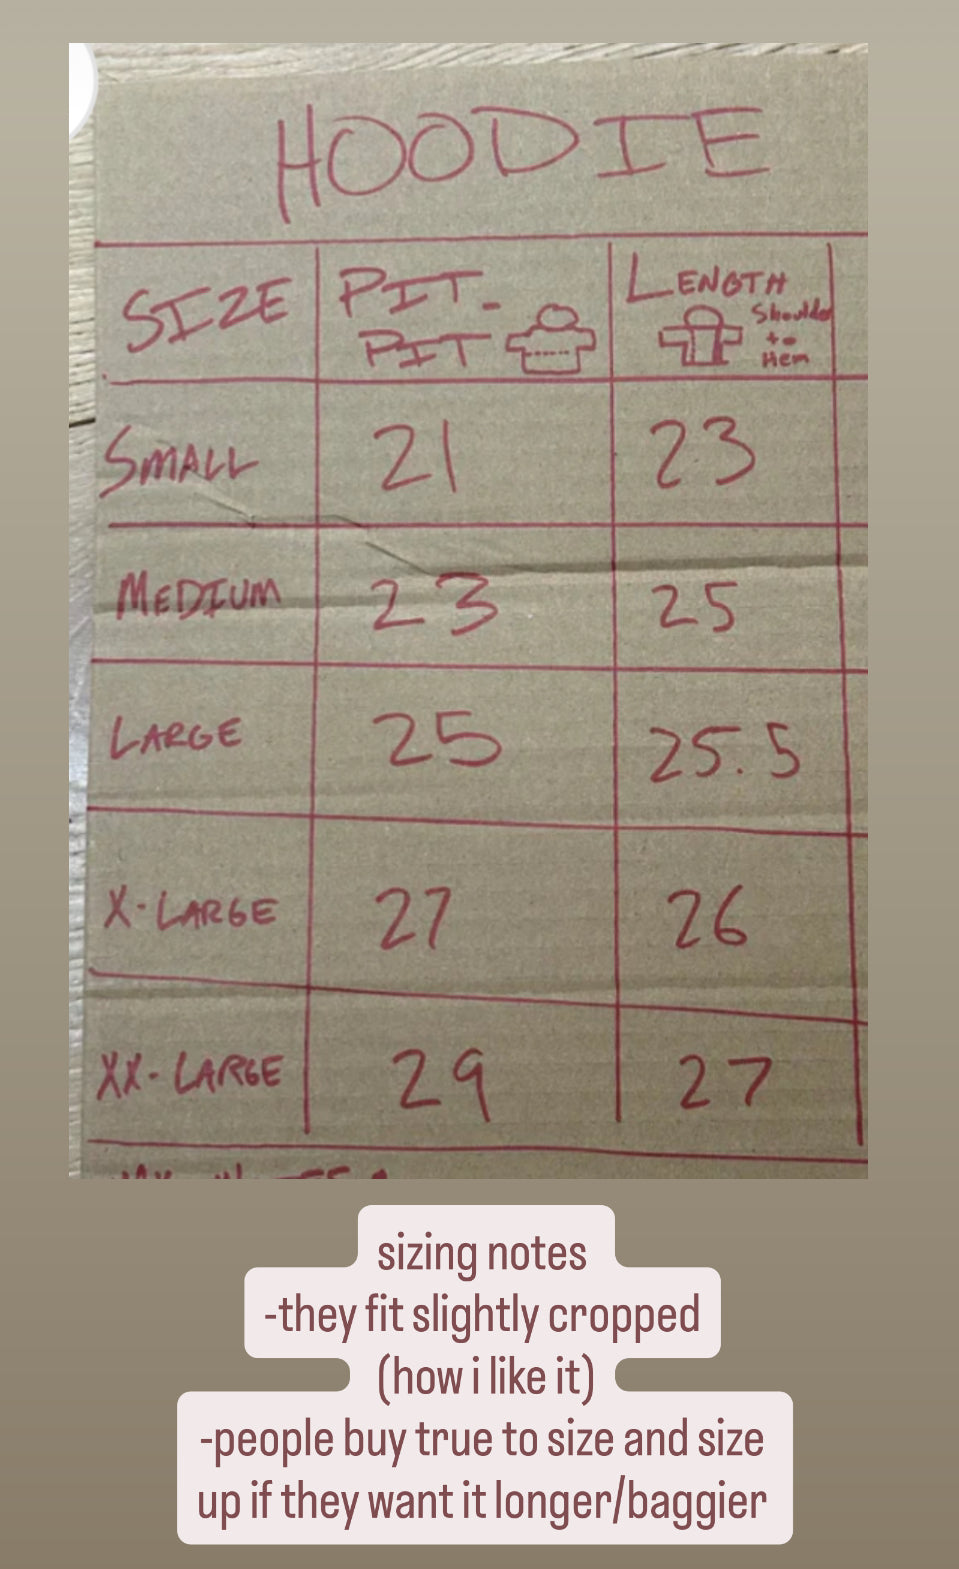 HOODIE
SIZE
PIT-
PIT
LENGTH
Shoulder
to
Hem
SMALL 21 23
MEDIUM 23 25
LARGE 25 25.5
X-LARGE 27 26
XX-LARGE 29 27
sizing notes
-they fit slightly cropped
(how i like it)
-people buy true to size and size
up if they want it longer/baggier